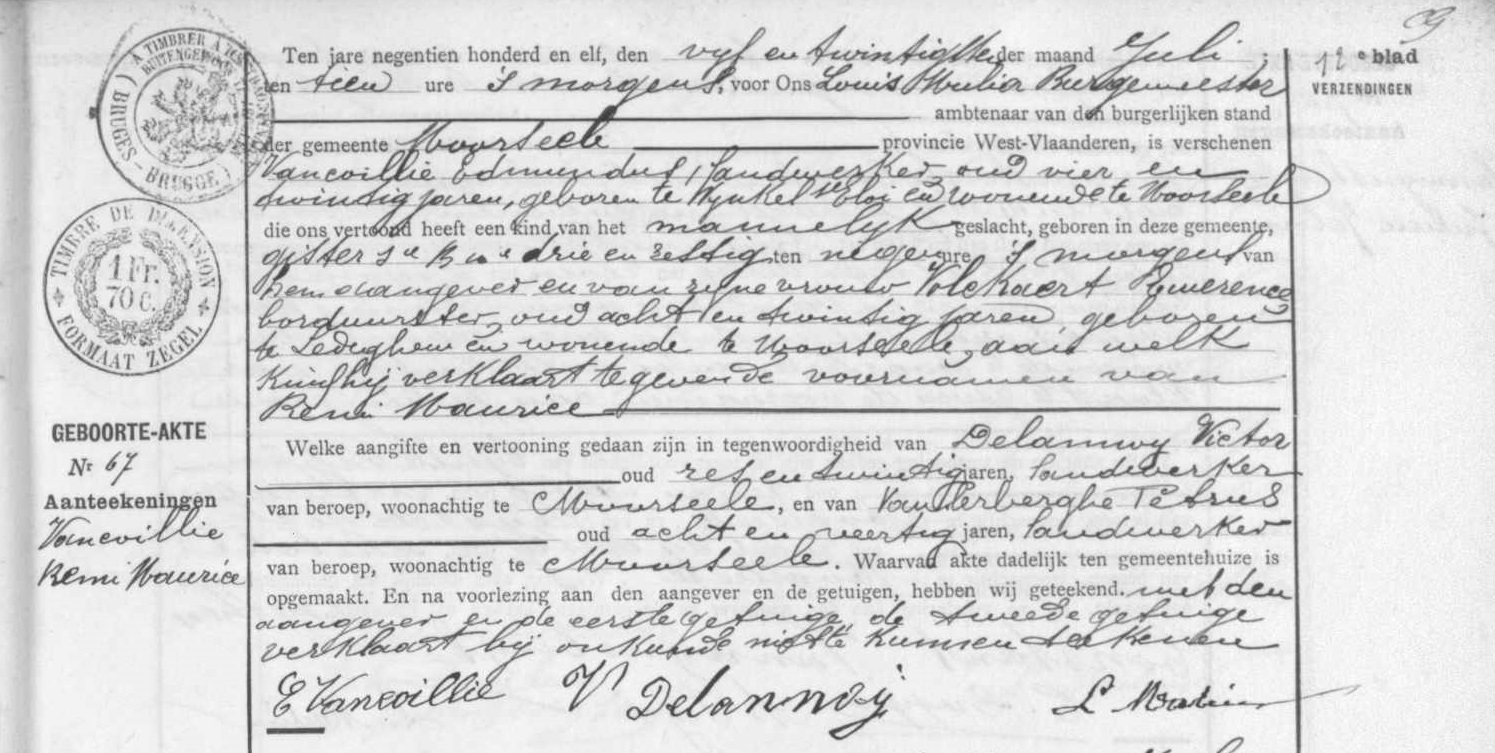 12e blad
VERZENDINGEN
À TIMBRER À
BUITENGEWOON
BRUGES - BRUGGE
TIMBRE DE DIMENSION
1 Fr.
70 C.
FORMAAT ZEGEL
GEBOORTE-AKTE
Nr 67
Aanteekeningen
Vancoillie
Remi Maurice
Ten jare negentien honderd en elf, den vyf en twintigsten der maand Juli,
ten tien ure 's morgens, voor Ons Louis Burgemeester
ambtenaar van den burgerlijken stand
der gemeente Moorseele provincie West-Vlaanderen, is verschenen
Vancoillie Edmundus, landwerker, oud vier en
twintig jaren, geboren te Wynkel St Eloi en wonende te Moorseele
die ons vertoond heeft een kind van het mannelyk geslacht, geboren in deze gemeente,
gister drie en zestig, ten negen ure 's morgens, van
hem aangever en van zyne vrouw Volckaert
borduurster, oud acht en twintig jaren, geboren
te Ledeghem en wonende te Moorseele, aan welk
Kind hij verklaart te geven de voornamen van
Remi Maurice
Welke aangifte en vertooning gedaan zijn in tegenwoordigheid van Delannoy Victor
oud zes en twintig jaren, landwerker
van beroep, woonachtig te Moorseele, en van Vandenberghe Petrus
oud acht en veertig jaren, landwerker
van beroep, woonachtig te Moorseele. Waarvan akte dadelijk ten gemeentehuize is
opgemaakt. En na voorlezing aan den aangever en de getuigen, hebben wij geteekend. met den
aangever en de eerste getuige, de tweede getuige
verklaart bij onkunde niet te kunnen teekenen
E Vancoillie V Delannoij L